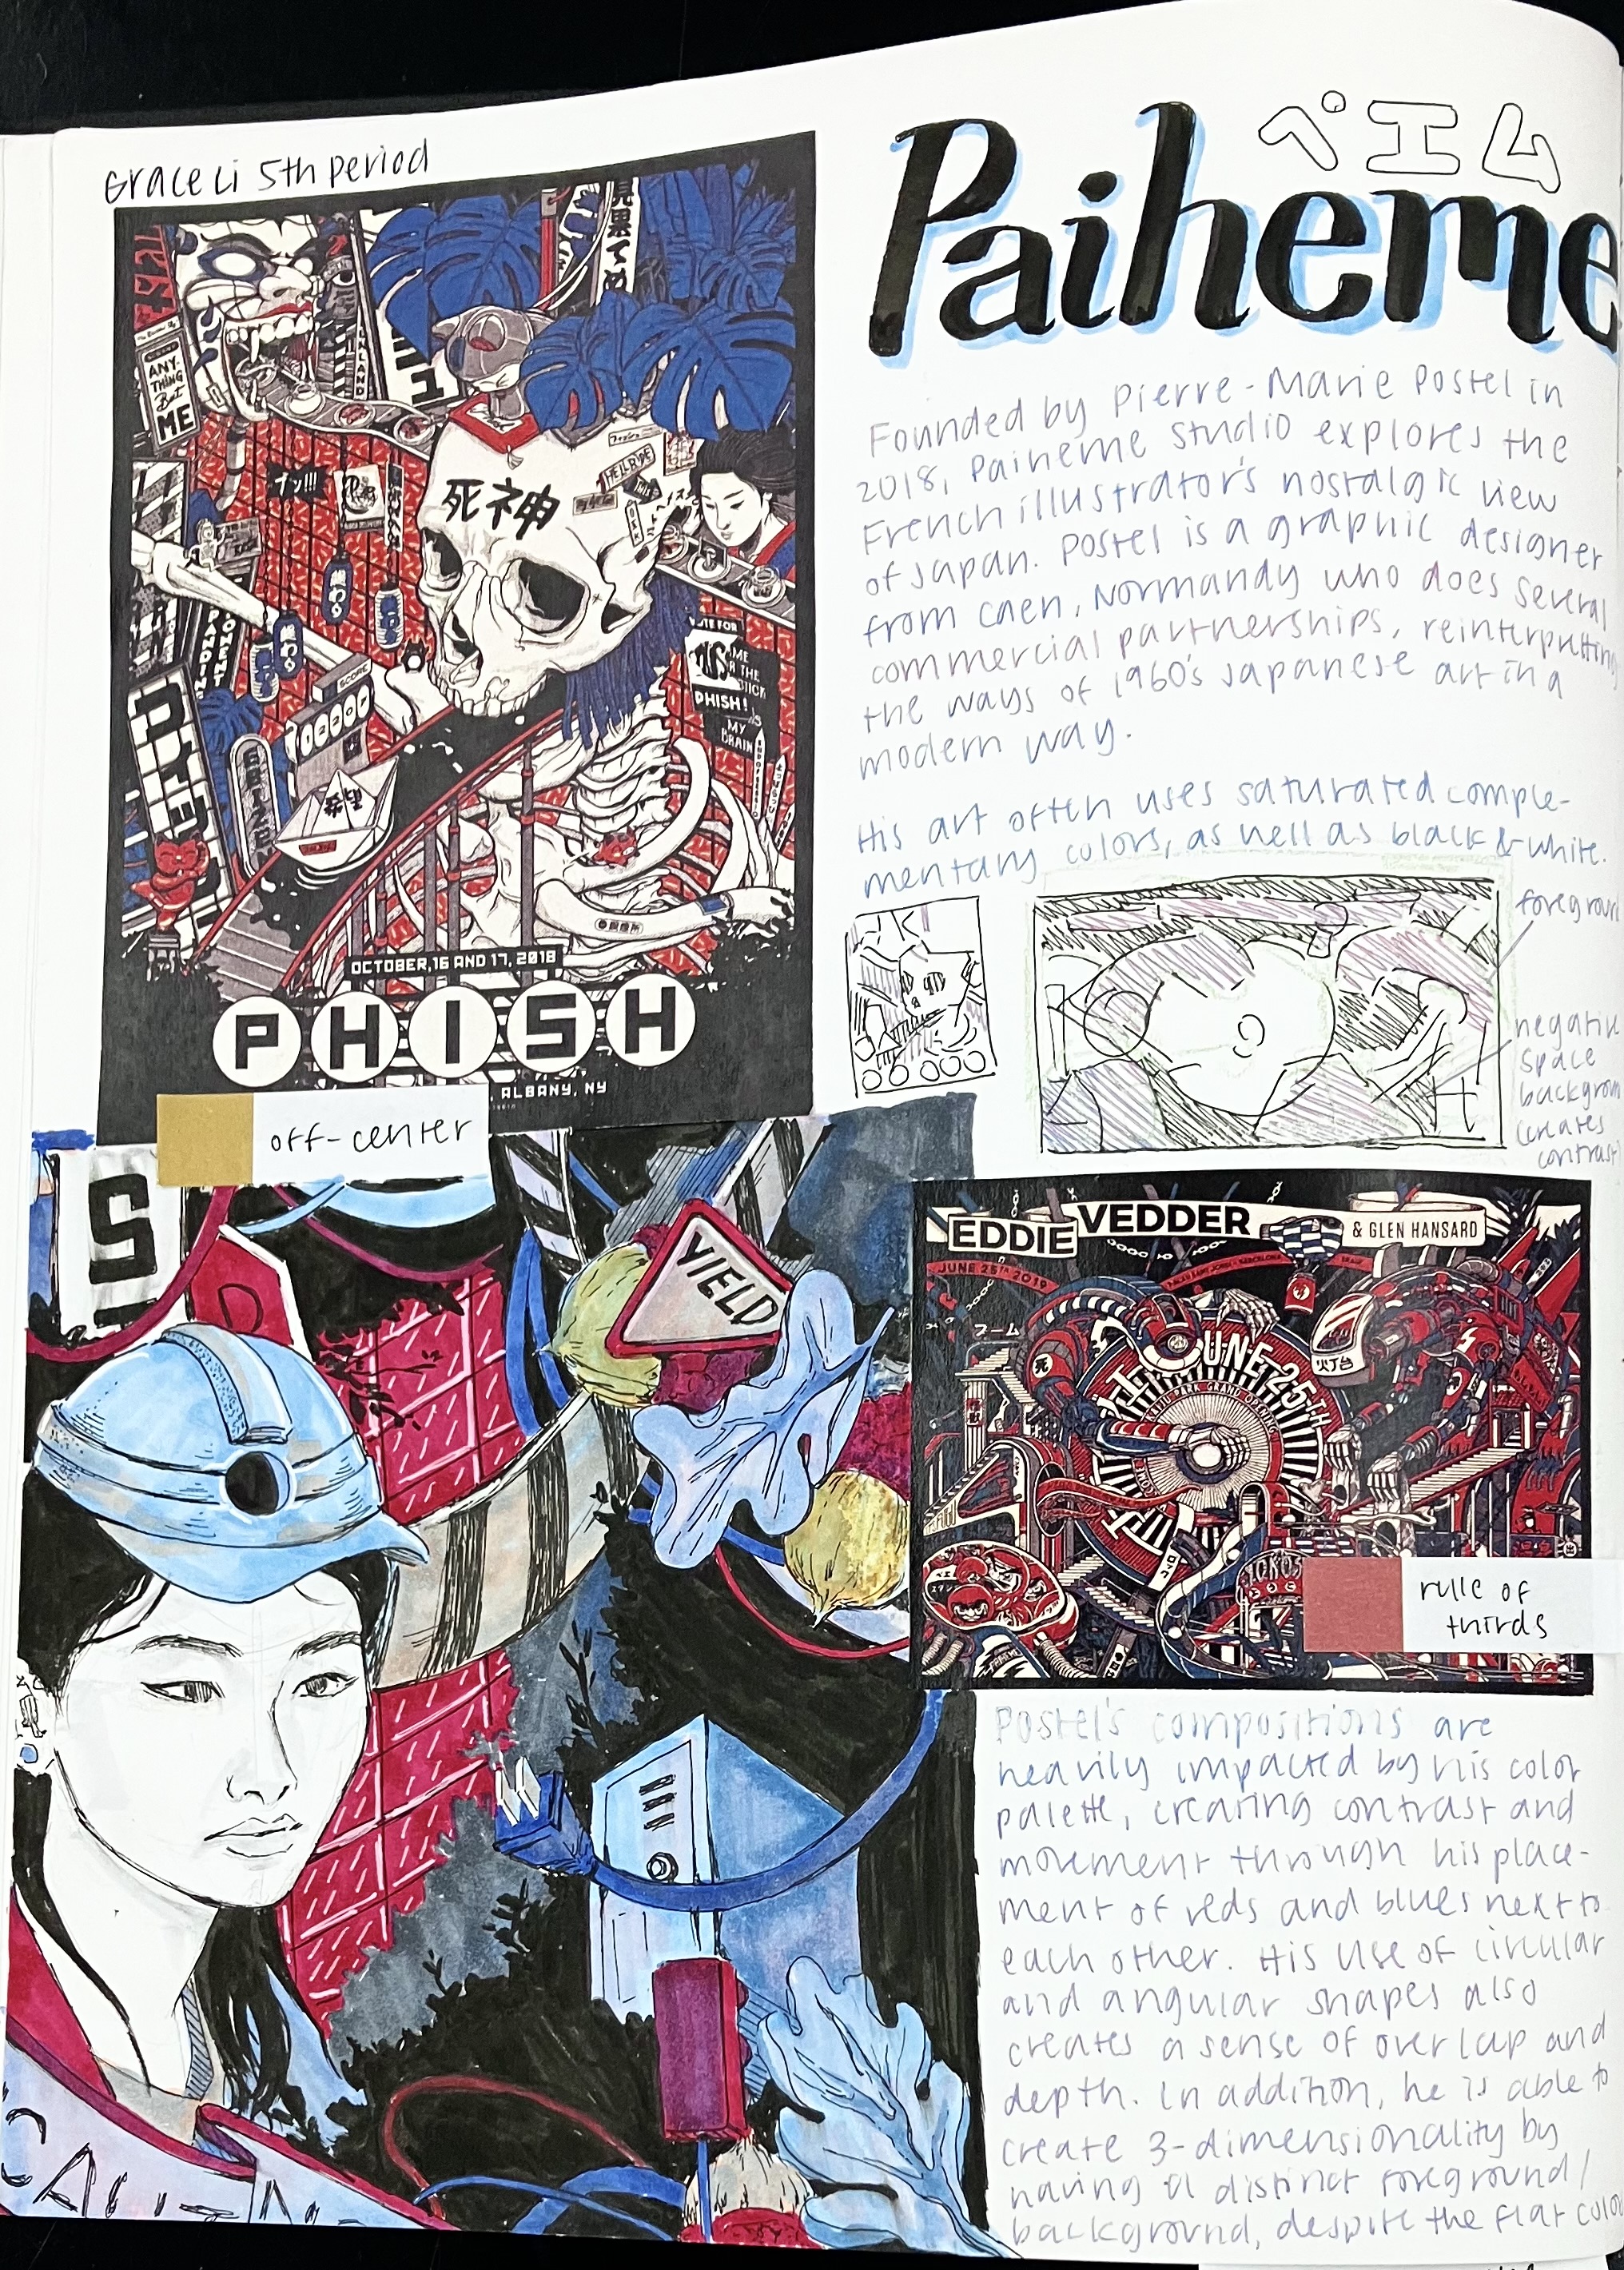 Grace Li 5th period
ペエム
Paiheme
Founded by Pierre-Marie Postel in
2018, Paiheme Studio explores the
French illustrator's nostalgic view
of Japan. Postel is a graphic designer
from Caen, Normandy who does several
commercial partnerships, reinterpretting
the ways of 1960's Japanese art in a
modern way.
His art often uses saturated comple-
mentary colors, as well as black & white.
foreground
negative
space
background
creates
contrast
ANY-
THING
But
ME
見果てぬ
死神
HELLRIDE
終わる
終わる
SCORE
希望
VOTE FOR
ME
OR THE
STICK
PHISH!
MY
BRAIN
SEIZEN
OCTOBER,16 AND 17, 2018
PHISH
, ALBANY, NY
off-center
S
YIELD
EDDIE VEDDER
& GLEN HANSARD
JUNE 25TH 2019
ブーム
死
JUNE 25TH
火丁台
ペエ
rule of
thirds
Postel's compositions are
heavily impacted by his color
palette, creating contrast and
movement through his place-
ment of reds and blues next to
each other. His use of circular
and angular shapes also
creates a sense of overlap and
depth. In addition, he is able to
create 3-dimensionality by
having a distinct foreground/
background, despite the flat color